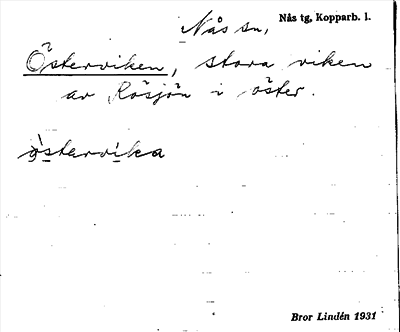 Nås sn, Nås tg, Kopparb. l.
Österviken, stora viken
av Rösjön i öster.
östervika
Bror Lindén 1931